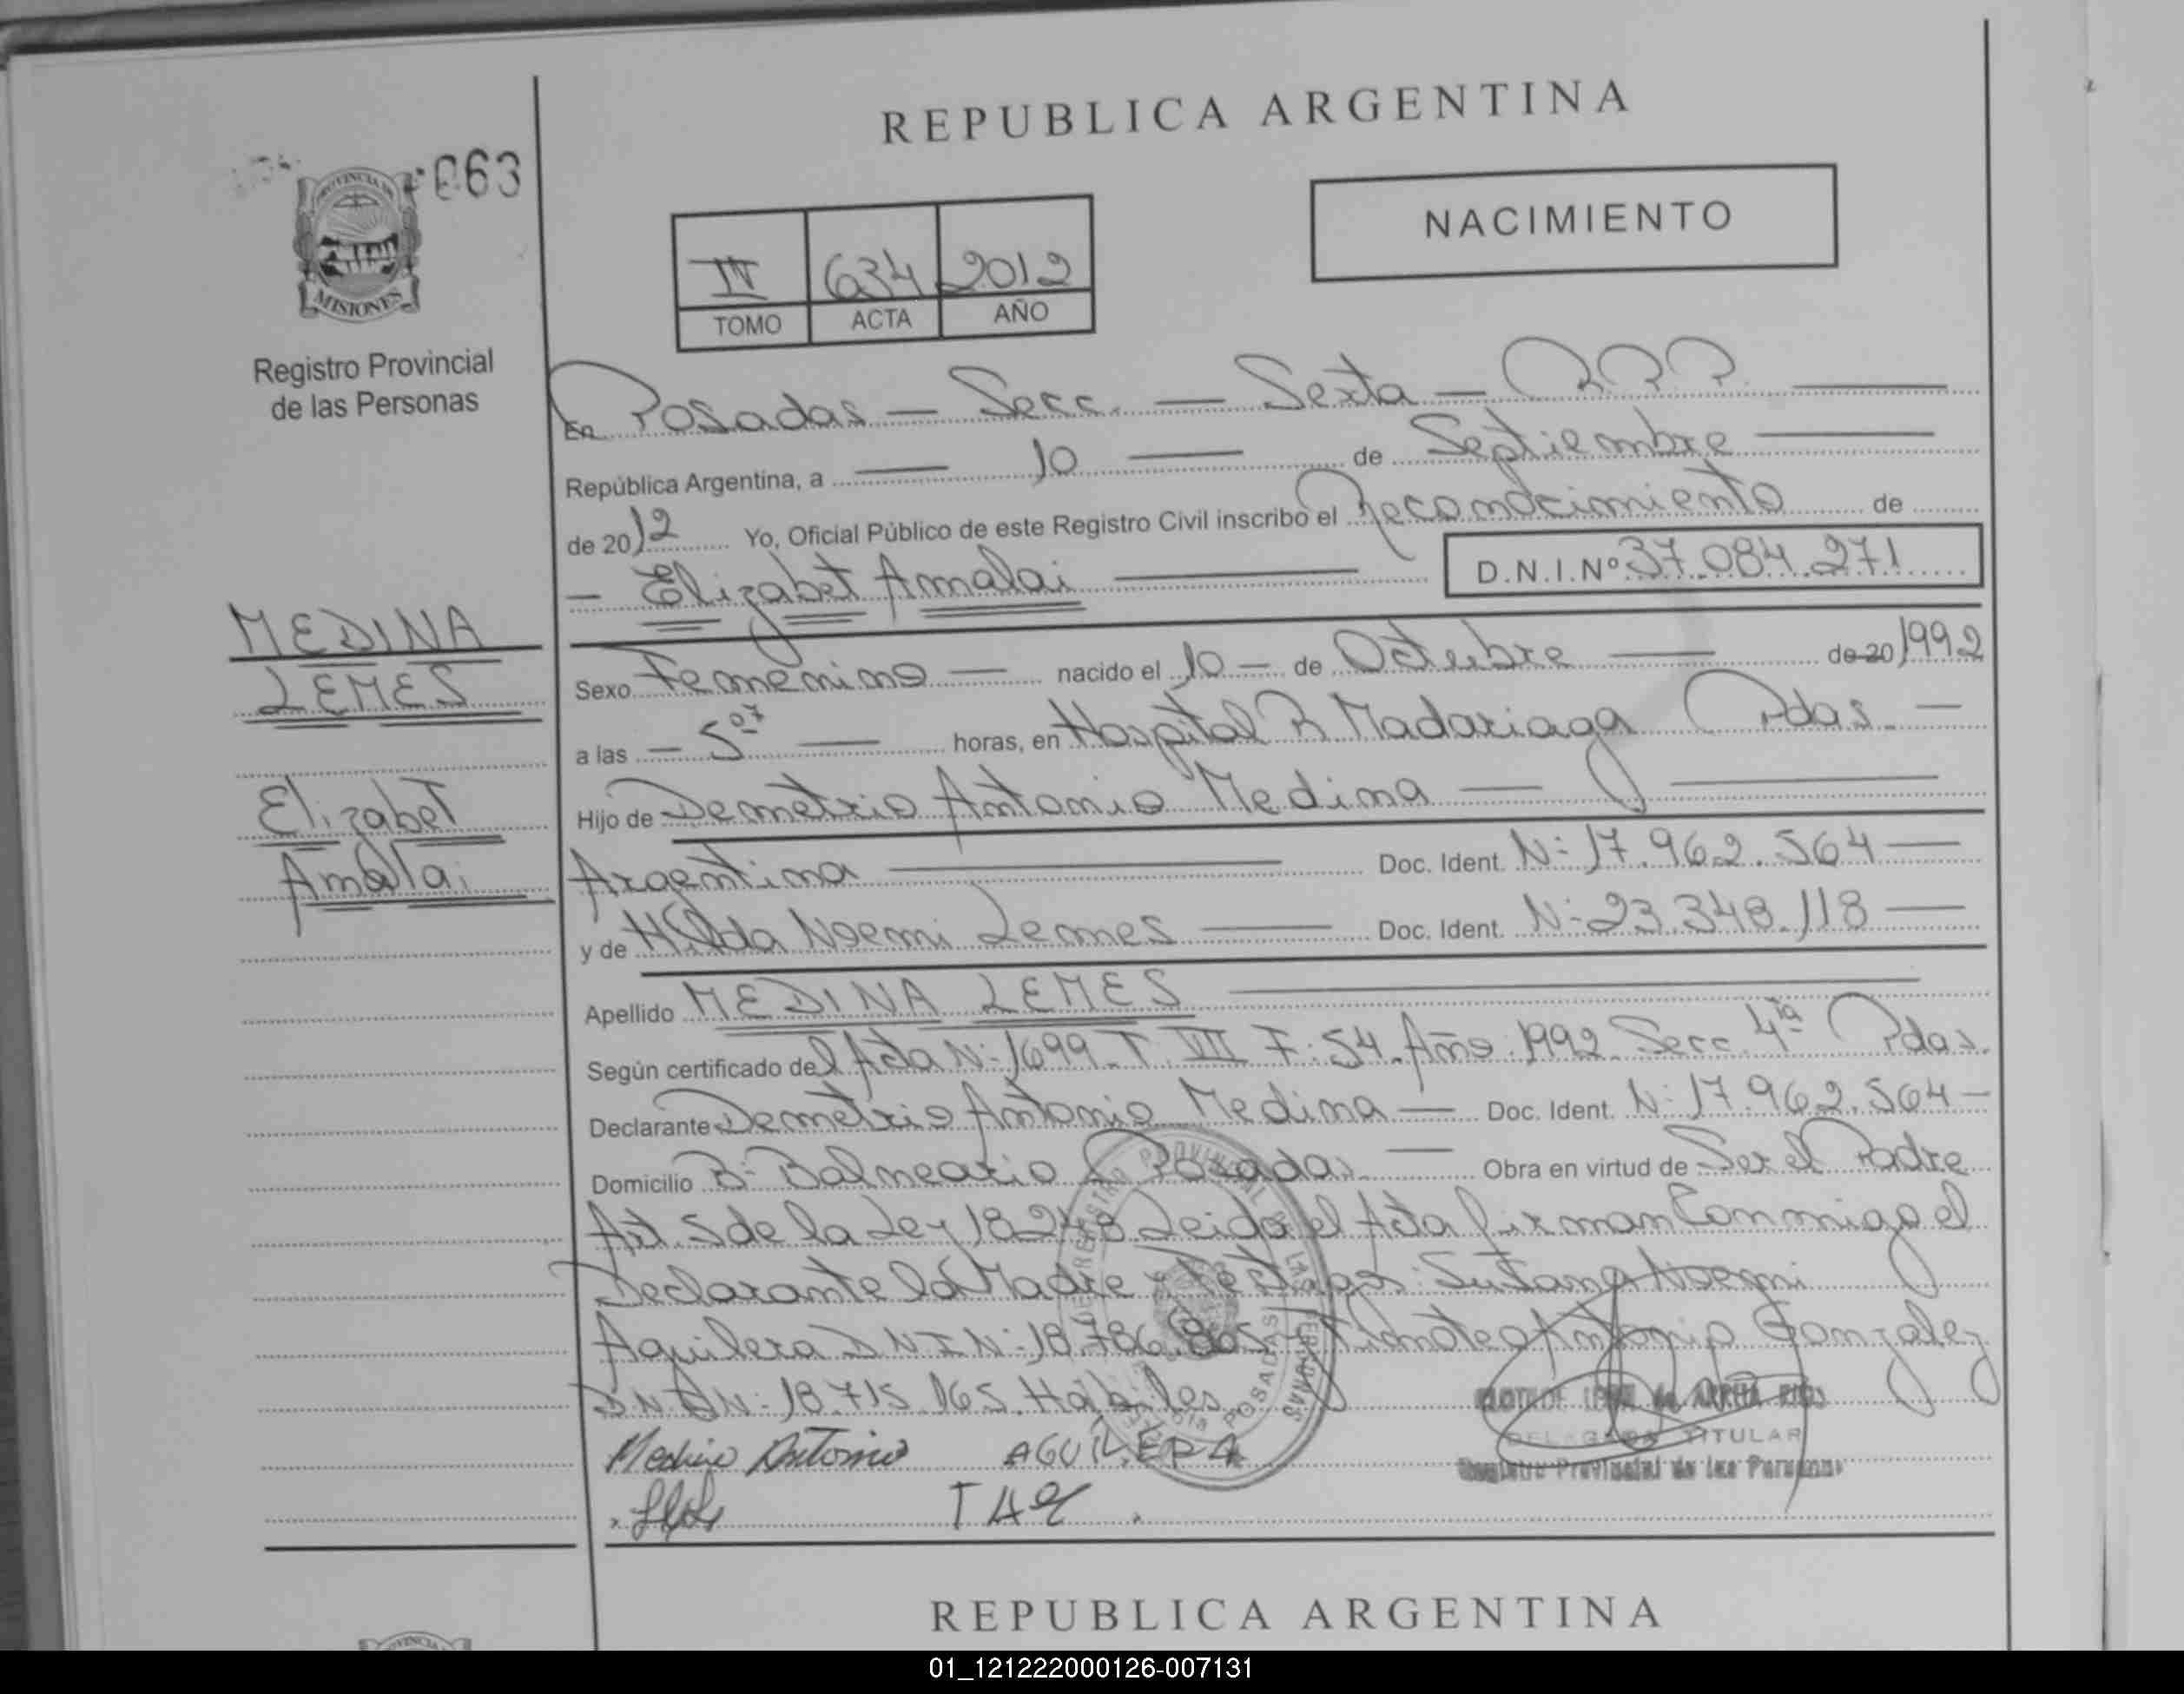 REPUBLICA ARGENTINA
063
PROVINCIA DE
MISIONES
NACIMIENTO
IV 634 2012
TOMO ACTA AÑO
Registro Provincial
de las Personas
En Posadas — Secc. — Sexta —
República Argentina, a — 10 — de Septiembre —
de 2012 Yo, Oficial Público de este Registro Civil inscribo el Reconocimiento de
— Elizabet Amalai — D.N.I.Nº 37.084.271
MEDINA
LEMES
Elizabet
Amalai
Sexo Femenino — nacido el 10 — de Octubre — de 20 1992
a las — 5⁰⁷ — horas, en Hospital R Madariaga Pdas. —
Hijo de Demetrio Antonio Medina —
Argentina — Doc. Ident. Nº 17.962.564 —
y de Hilda Noemi Lemes — Doc. Ident. Nº 23.348.118 —
Apellido MEDINA LEMES —
Según certificado del Acta Nº 1699 T. VII F: 54 Año 1992 Secc 4ta Pdas.
Declarante Demetrio Antonio Medina — Doc. Ident. Nº 17.962.564 —
Domicilio Bº Balneario Posadas — Obra en virtud de Ser el Padre
Art. 5 de la Ley 18248 Leida el Acta firman Conmigo el
Declarante la Madre y Testigos: Sutana Noemi
Aguilera DNI Nº 18.786.805 y Timoteo Antonio Gonzalez
DNI Nº 18.715.165 Habiles
Medina Antonio AGUILERA
TITULAR
Registro Provincial de las Personas
REPUBLICA ARGENTINA
01_121222000126-007131